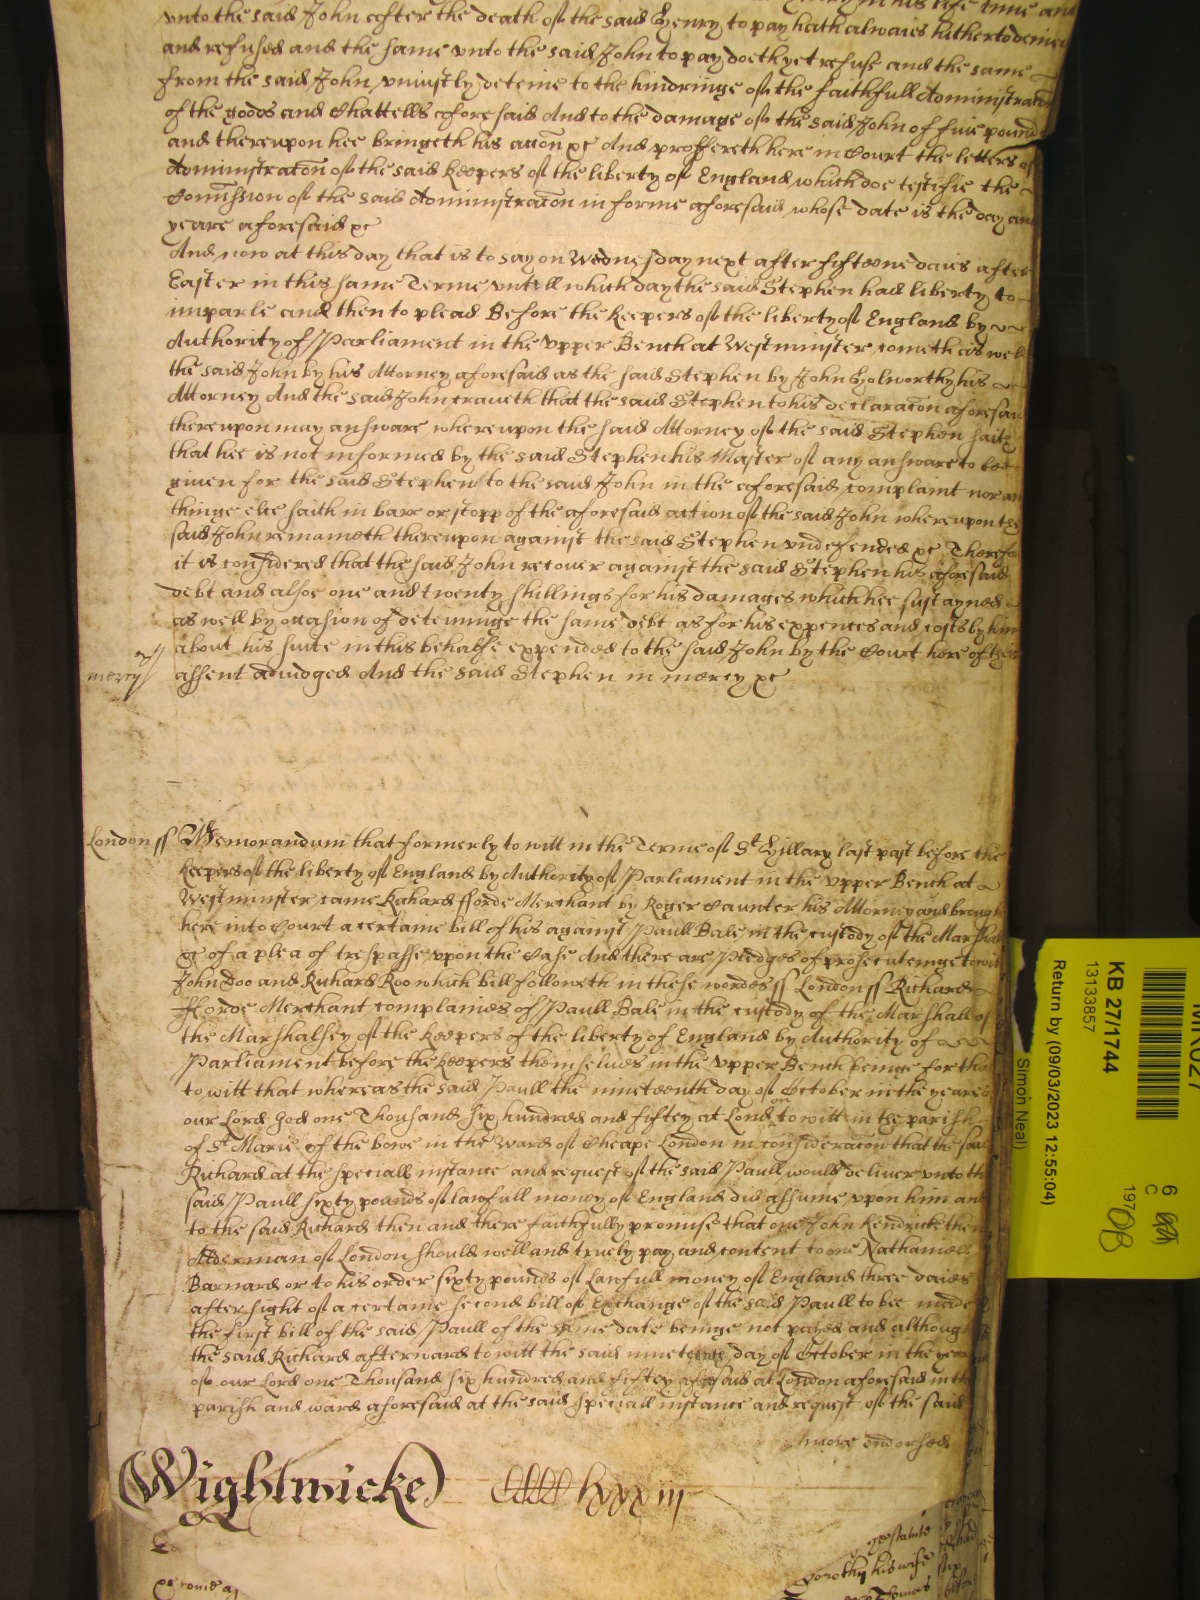 vnto the said John after the death of the said Henry to pay hath alwaies hitherto denied
and refused and the same vnto the said John to pay doeth yet refuse and the same
from the said John vniustly deteine to the hindringe of the faithfull Administracon
of the goods and Chattells aforesaid And to the damage of the said John of fiue pound
and thereupon hee bringeth his accon &c And proffereth here in Court the letters of
Administracon of the said Keepers of the liberty of England which doe testifie the
Comission of the said Administracon in forme aforesaid whose date is the day and
yeare aforesaid &c
And now at this day that is to say on Wednesday next after fifteene daies after
Easter in this same Terme vntill which day the said Stephen had liberty to
imparle and then to plead Before the Keepers of the liberty of England by
Authority of Parliament in the vpper Bench at Westminster cometh as well
the said John by his Attorney aforesaid as the said Stephen by John Holworthy his
Attorney And the said John craueth that the said Stephen to his declaracon aforesaid
thereupon may answare whereupon the said Attorney of the said Stephen saith
that hee is not informed by the said Stephen his Master of any answare to bee
giuen for the said Stephen to the said John in the aforesaid complaint nor any
thinge else saith in barr or stopp of the aforesaid action of the said John whereupon the
said John remaineth thereupon against the said Stephen vndefended &c Therefore
it is considered that the said John recouer against the said Stephen his aforesaid
debt and alsoe one and twenty shillings for his damages which hee sustayned
as well by occasion of deteininge the same debt as for his expences and costs by him
about his suite in this behalfe expended to the said John by the Court here of their
mercy
assent adiudged And the said Stephen in mercy &c
London ss Memorandum that formerly to witt in the Terme of St Hillary last past before the
Keepers of the liberty of England by Authority of Parliament in the vpper Bench at
Westminster came Richard fforde Merchant by Roger Caunter his Attorney and brought
here into Court a certaine bill of his against Paull Bale in the custody of the Marshall
&c of a plea of trespasse vpon the Case And there are Pledges of prosecuteinge to witt
John Doo and Richard Roo which bill followeth in these wordes ss London ss Richard
fforde Merchant complaines of Paull Bale in the custody of the Marshall of
the Marshalsey of the Keepers of the liberty of England by Authority of
Parliament before the Keepers themselues in the vpper Bench beinge for that
to witt that whereas the said Paull the nineteenth day of October in the yeare of
our Lord God one Thousand six hundred and fiftey at London to witt in the parish
of St Marie of the bowe in the Ward of Cheape London in consideracon that the said
Richard at the speciall instance and request of the said Paull would deliuer vnto the
said Paull sixty pounds of lawfull money of England did assume vpon him and
to the said Richard then and there faithfully promise that one John Kendricke then
Alderman of London should well and truely pay and content to one Nathaniell
Barnard or to his order sixty pounds of lawfull money of England three daies
after sight of a certaine second bill of Exchange of the said Paull to bee made
the first bill of the said Paull of the same date beinge not payed and although
the said Richard afterward to witt the said nineteenth day of October in the yeare
of our Lord one Thousand six hundred and fiftey aforesaid at London aforesaid in the
parish and ward aforesaid at the said speciall instance and request of the said
more endorsed
Wightwicke CCCC lxxxiij
Dorothy his wife
KB 27/1744
13133857
Return by (09/03/2023 12:55:04)
Simon Neal)
6
C
197